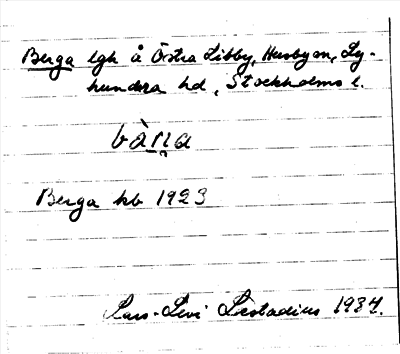 Berga lgh å Östra Libby, Husby sn, Ly-
hundra hd, Stockholms l.
bàṇa
Berga kb 1923
Lars-Levi Læstadius 1934.